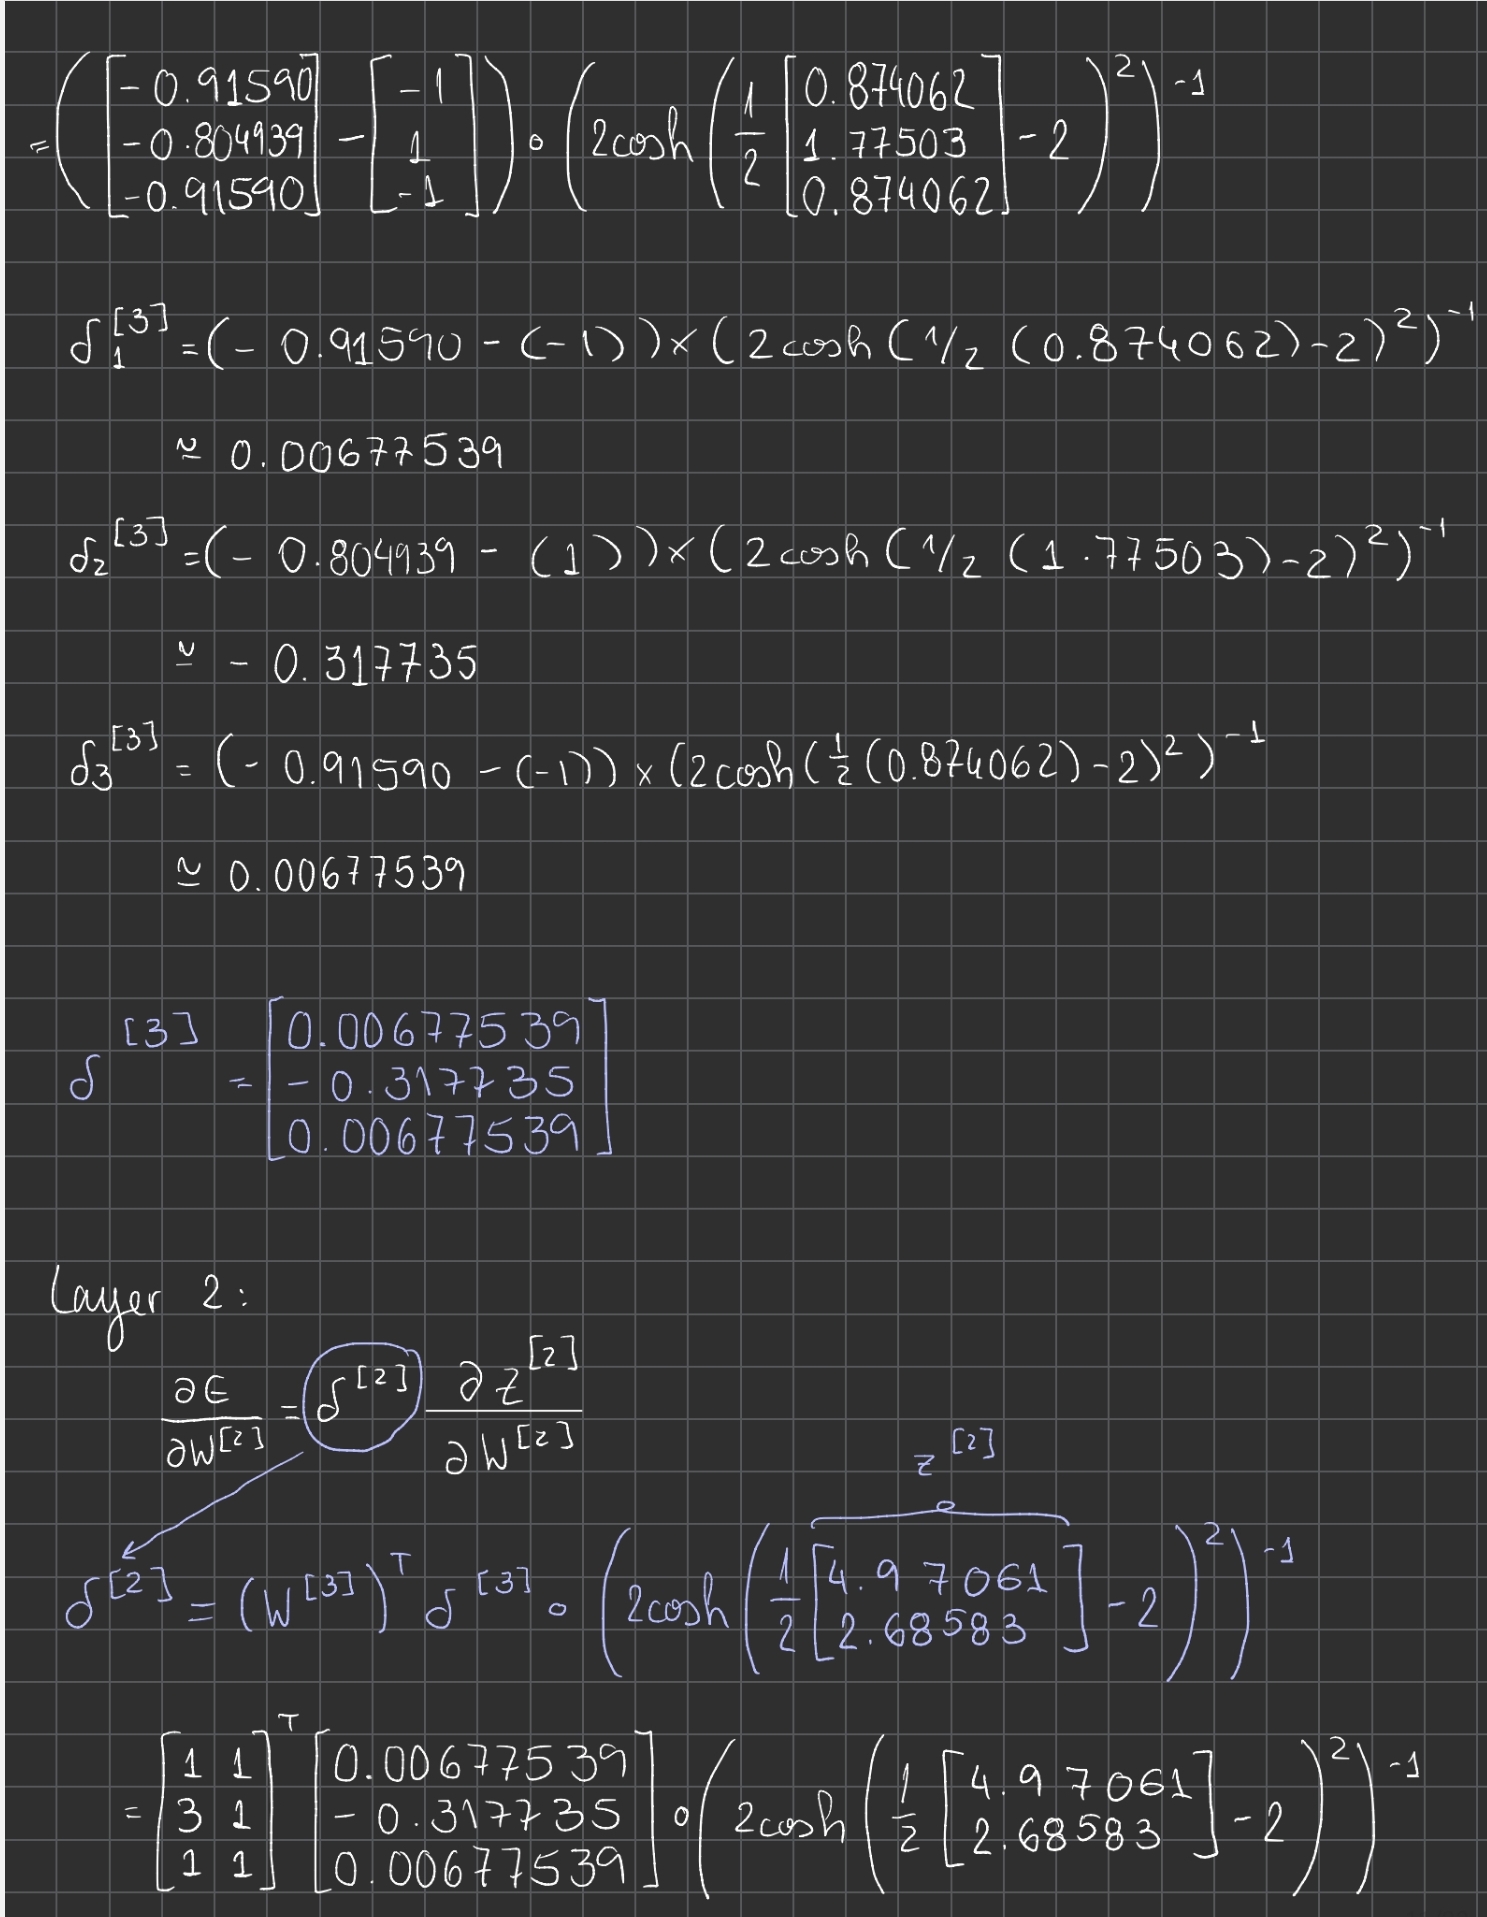 = ( [ -0.91590 -0.804939 -0.91590 ] - [ -1 1 -1 ] ) ∘ ( 2cosh ( 1/2 [ 0.874062 1.77503 0.874062 ] - 2 )² )⁻¹
δ₁^[3] = (- 0.91590 - (-1)) × (2cosh (1/2 (0.874062) - 2)²)⁻¹
≃ 0.00677539
δ₂^[3] = (- 0.804939 - (1)) × (2cosh (1/2 (1.77503) - 2)²)⁻¹
≃ - 0.317735
δ₃^[3] = (- 0.91590 - (-1)) × (2cosh (1/2 (0.874062) - 2)²)⁻¹
≃ 0.00677539
δ^[3] = [ 0.00677539 - 0.317735 0.00677539 ]
Layer 2:
∂E/∂W^[2] = δ^[2] ∂z^[2]/∂W^[2]
z^[2]
δ^[2] = (W^[3])^T δ^[3] ∘ ( 2cosh ( 1/2 [ 4.97061 2.68583 ] - 2 )² )⁻¹
= [ 1 1 3 1 1 1 ]^T [ 0.00677539 - 0.317735 0.00677539 ] ∘ ( 2cosh ( 1/2 [ 4.97061 2.68583 ] - 2 )² )⁻¹